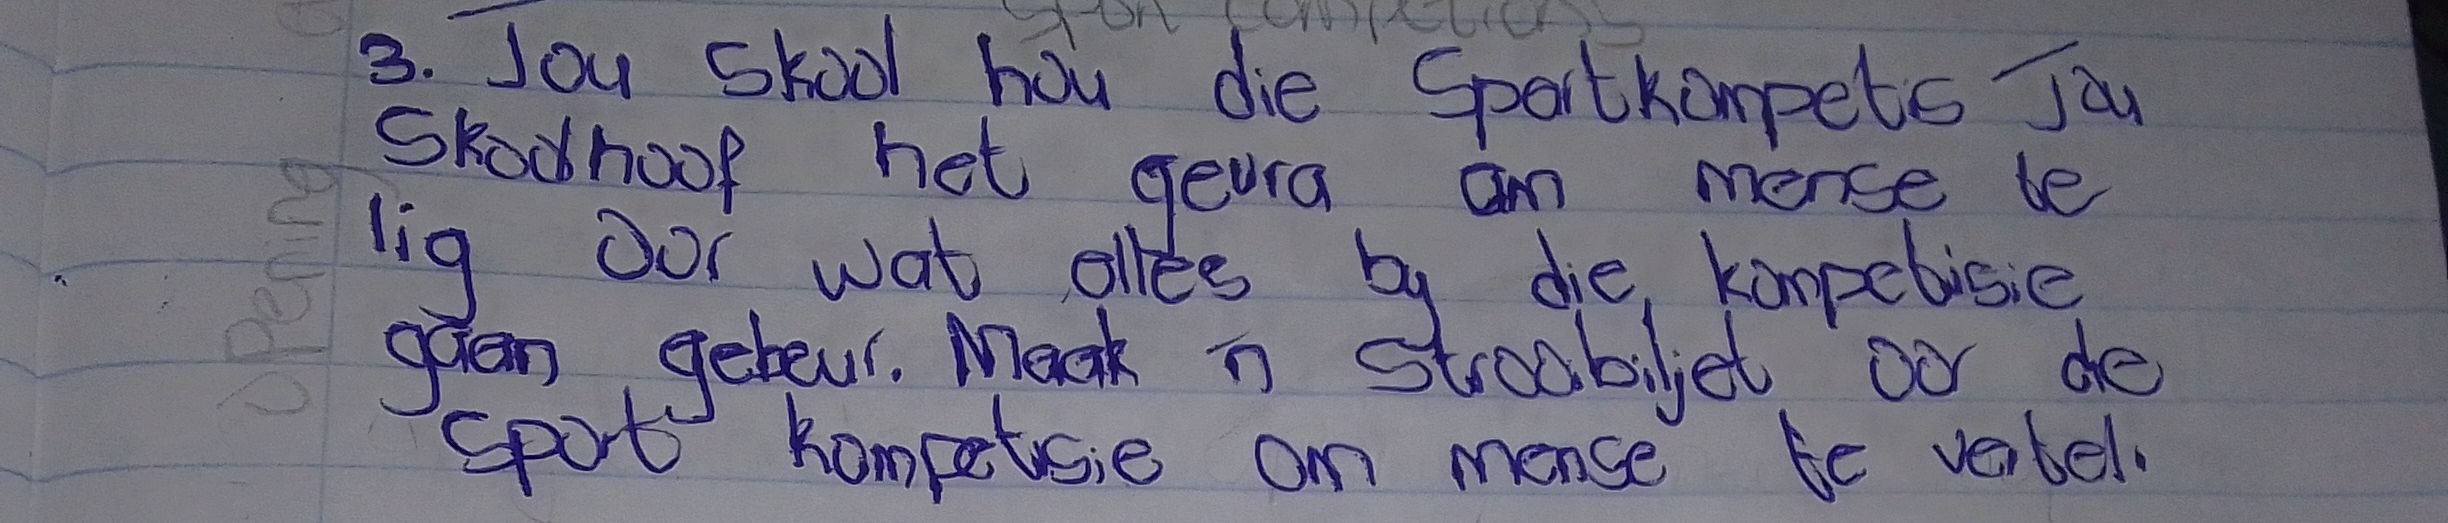 Sport competions
3. Jou skool hou die Sportkompetis Jou
Skoolhoof het gevra om mense te
lig oor wat alles by die kompetisie
gaan gebeur. Maak 'n strooibiljet oor de
sport kompetisie om mense te vertel.
Opening